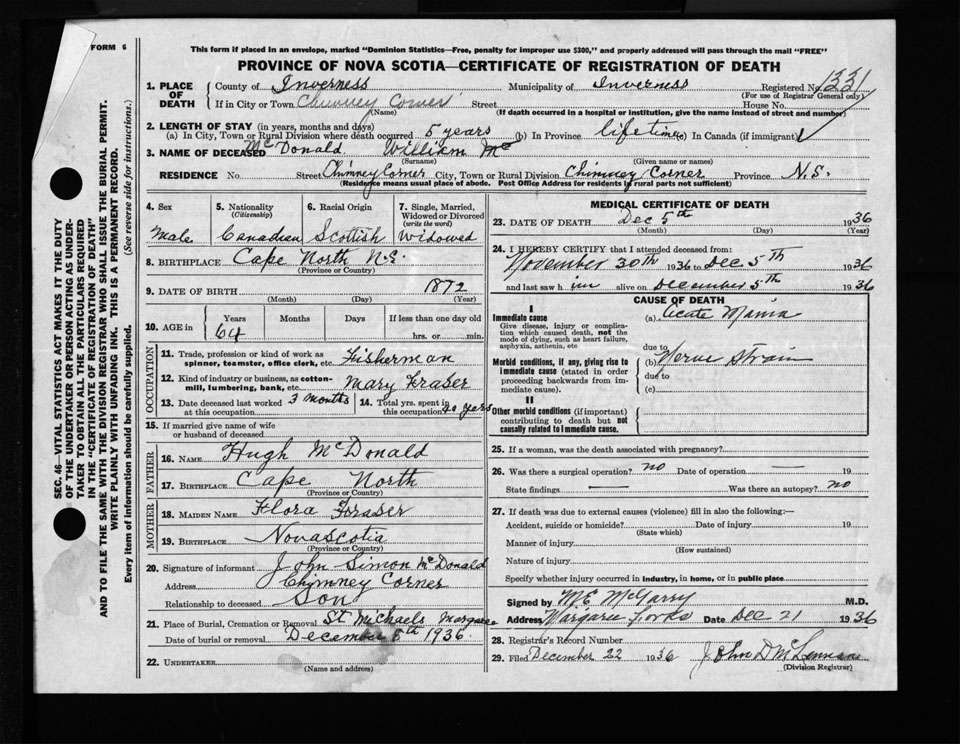 FORM 6
This form if placed in an envelope, marked "Dominion Statistics—Free, penalty for improper use $300," and properly addressed will pass through the mail "FREE"
PROVINCE OF NOVA SCOTIA—CERTIFICATE OF REGISTRATION OF DEATH
1. PLACE OF DEATH County of Inverness Municipality of Inverness Registered No. 1331
(For use of Registrar General only)
If in City or Town Chimney Corner Street House No.
(Name) (If death occurred in a hospital or institution, give the name instead of street and number)
2. LENGTH OF STAY (in years, months and days)
(a) In City, Town or Rural Division where death occurred 5 years (b) In Province life time (c) In Canada (if immigrant)
3. NAME OF DECEASED McDonald William Mc
(Surname) (Given name or names)
RESIDENCE No. Street Chimney Corner City, Town or Rural Division Chimney Corner Province N.S.
(Residence means usual place of abode. Post Office Address for residents in rural parts not sufficient)
4. Sex 5. Nationality (Citizenship) 6. Racial Origin 7. Single, Married, Widowed or Divorced (write the word)
Male Canadian Scottish Widowed
8. BIRTHPLACE Cape North N.S.
(Province or Country)
9. DATE OF BIRTH 1872
(Month) (Day) (Year)
10. AGE in Years Months Days If less than one day old
64 hrs. or min.
OCCUPATION
11. Trade, profession or kind of work as spinner, teamster, office clerk, etc. Fisherman
12. Kind of industry or business, as cotton-mill, lumbering, bank, etc. Mary Fraser
13. Date deceased last worked at this occupation 3 months 14. Total yrs. spent in this occupation 20 years
15. If married give name of wife or husband of deceased
FATHER
16. NAME Hugh McDonald
17. BIRTHPLACE Cape North
(Province or Country)
MOTHER
18. MAIDEN NAME Flora Fraser
19. BIRTHPLACE Novascotia
(Province or Country)
20. Signature of informant John Simon McDonald
Address Chimney Corner
Relationship to deceased Son
21. Place of Burial, Cremation or Removal St Michaels Margaree
Date of burial or removal December 8th 1936
22. UNDERTAKER
(Name and address)
MEDICAL CERTIFICATE OF DEATH
23. DATE OF DEATH Dec 5th 1936
(Month) (Day) (Year)
24. I HEREBY CERTIFY that I attended deceased from:
November 30th 1936 to Dec 5th 1936
and last saw him alive on December 5th 1936
CAUSE OF DEATH
I
Immediate cause (a) Acute Mania
Give disease, injury or complication which caused death, not the mode of dying, such as heart failure, asphyxia, asthenia, etc
due to
Morbid conditions, if any, giving rise to immediate cause (stated in order proceeding backwards from immediate cause). (b) Nerve Strain
due to
(c)
II
Other morbid conditions (if important) contributing to death but not causally related to immediate cause.
25. If a woman, was the death associated with pregnancy?
26. Was there a surgical operation? no Date of operation — 19
State findings — Was there an autopsy? no
27. If death was due to external causes (violence) fill in also the following:—
Accident, suicide or homicide? Date of injury 19
(State which)
Manner of injury
(How sustained)
Nature of injury
Specify whether injury occurred in industry, in home, or in public place
Signed by M E McGarry M.D.
Address Margaree Forks Date Dec 21 1936
28. Registrar's Record Number
29. Filed December 22 1936 John D McLennan
(Division Registrar)
SEC. 46—VITAL STATISTICS ACT MAKES IT THE DUTY
OF THE UNDERTAKER OR PERSON ACTING AS UNDER-
TAKER TO OBTAIN ALL THE PARTICULARS REQUIRED
IN THE "CERTIFICATE OF REGISTRATION OF DEATH"
AND TO FILE THE SAME WITH THE DIVISION REGISTRAR WHO SHALL ISSUE THE BURIAL PERMIT.
WRITE PLAINLY WITH UNFADING INK. THIS IS A PERMANENT RECORD.
Every item of Information should be carefully supplied. (See reverse side for instructions.)